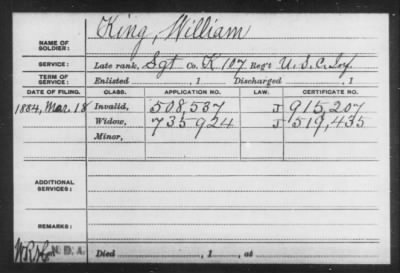 NAME OF SOLDIER: King, William
SERVICE: Late rank, Sgt Co. K, 107 Reg't U. S. C. Inf.
TERM OF SERVICE: Enlisted , 1 Discharged , 1
DATE OF FILING. CLASS. APPLICATION NO. LAW. CERTIFICATE NO.
1884, Mar. 18 Invalid, 508,537 J 915,207
Widow, 735924 J 519,435
Minor,
ADDITIONAL SERVICES:
REMARKS:
N. D. A. Died , 1 , at